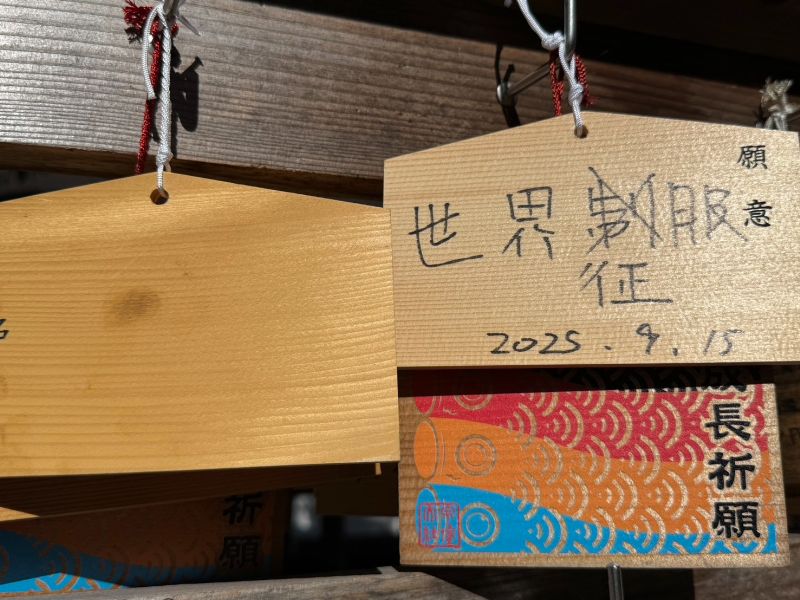 願意
世界制服
征
2025.9.15
成長祈願
祈願